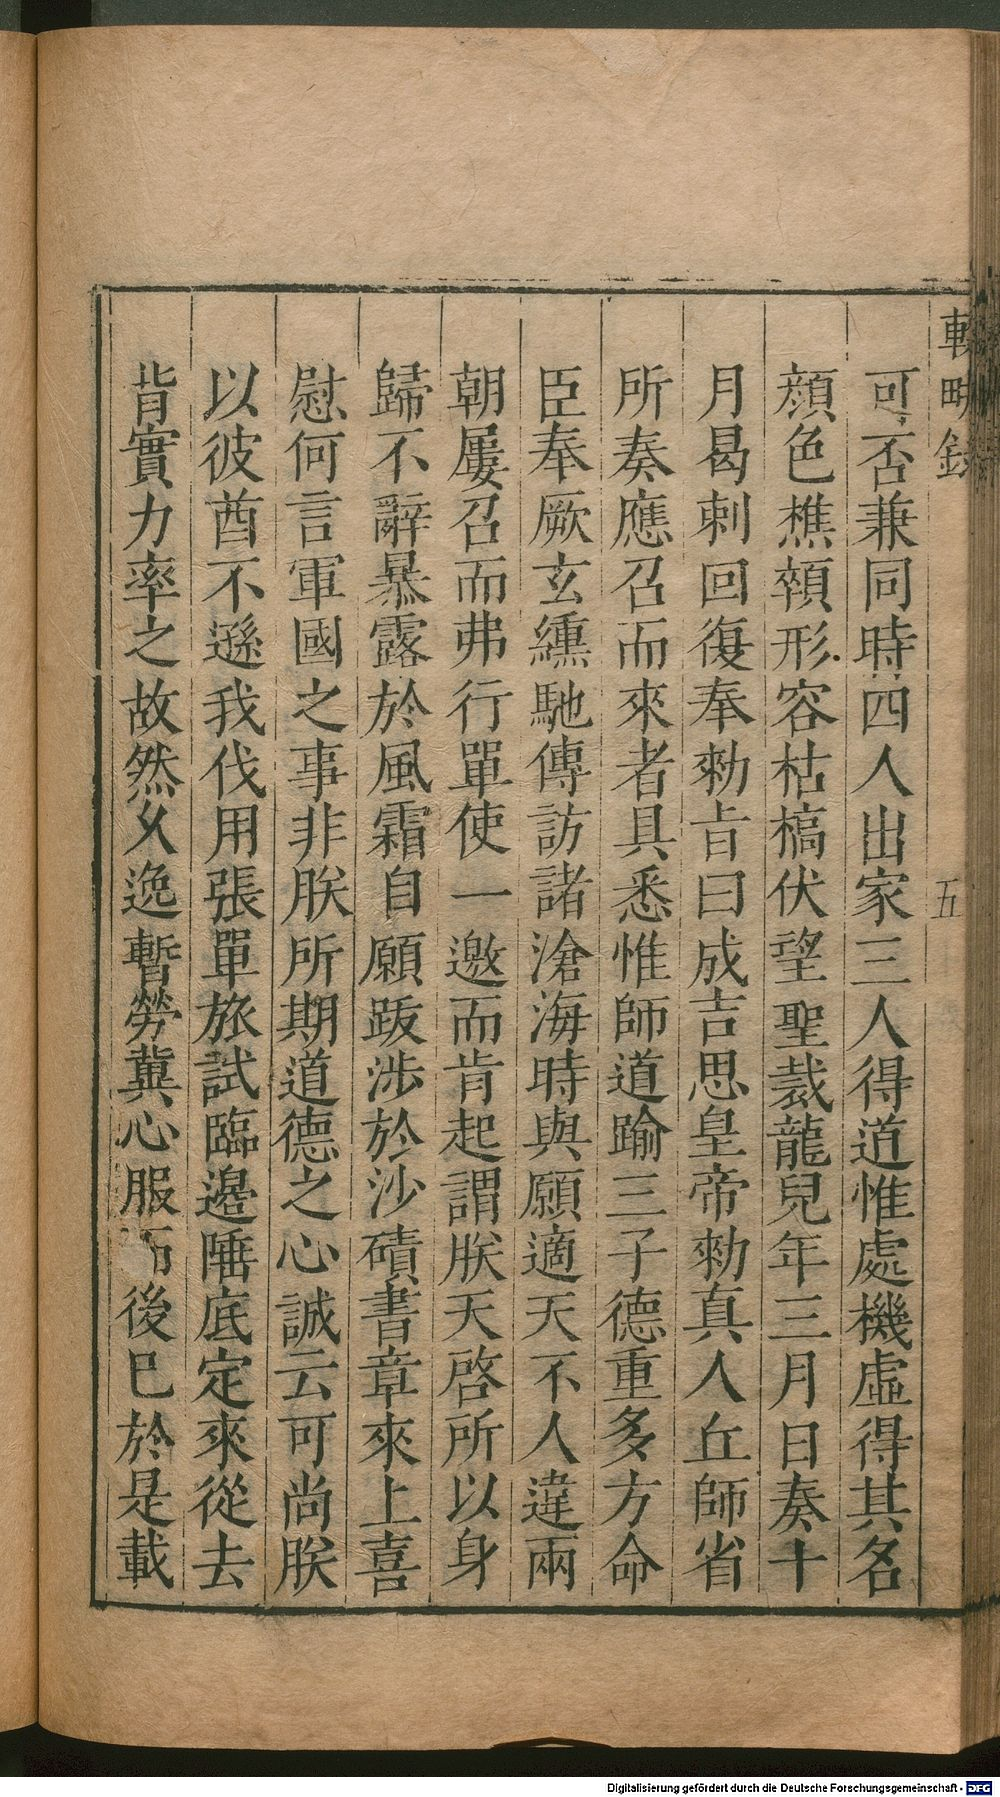 輟畊錄
五
可否兼同時四人出家三人得道惟處機虛得其名
顏色憔顇形容枯槁伏望聖裁龍兒年三月日奏十
月曷剌回復奉勑旨曰成吉思皇帝勑真人丘師省
所奏應召而來者具悉惟師道踰三子德重多方命
臣奉厥玄纁馳傳訪諸滄海時與願適天不人違兩
朝屢召而弗行單使一邀而肯起謂朕天啓所以身
歸不辭暴露於風霜自願跋涉於沙磧書章來上喜
慰何言軍國之事非朕所期道德之心誠云可尚朕
以彼酋不遜我伐用張單旅試臨邊陲底定來從去
背實力率之故然久逸暫勞冀心服而後已於是載
Digitalisierung gefördert durch die Deutsche Forschungsgemeinschaft - DFG